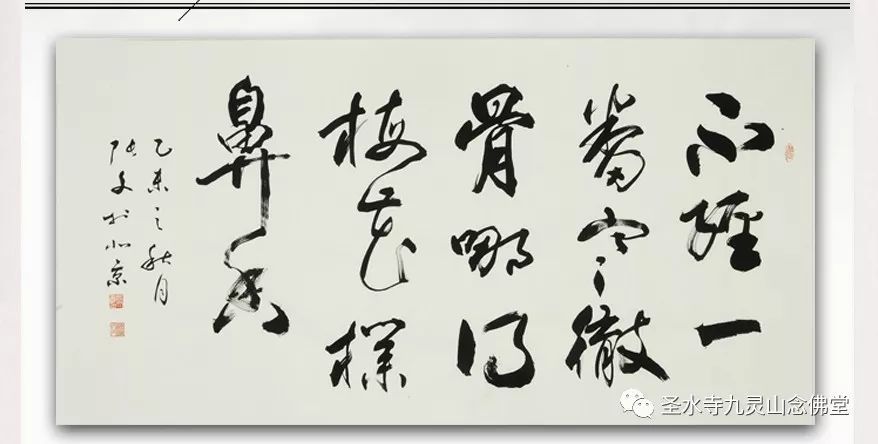 不經一
番寒徹
骨哪得
梅花撲
鼻香
乙未之秋月
张文於北京
圣水寺九灵山念佛堂